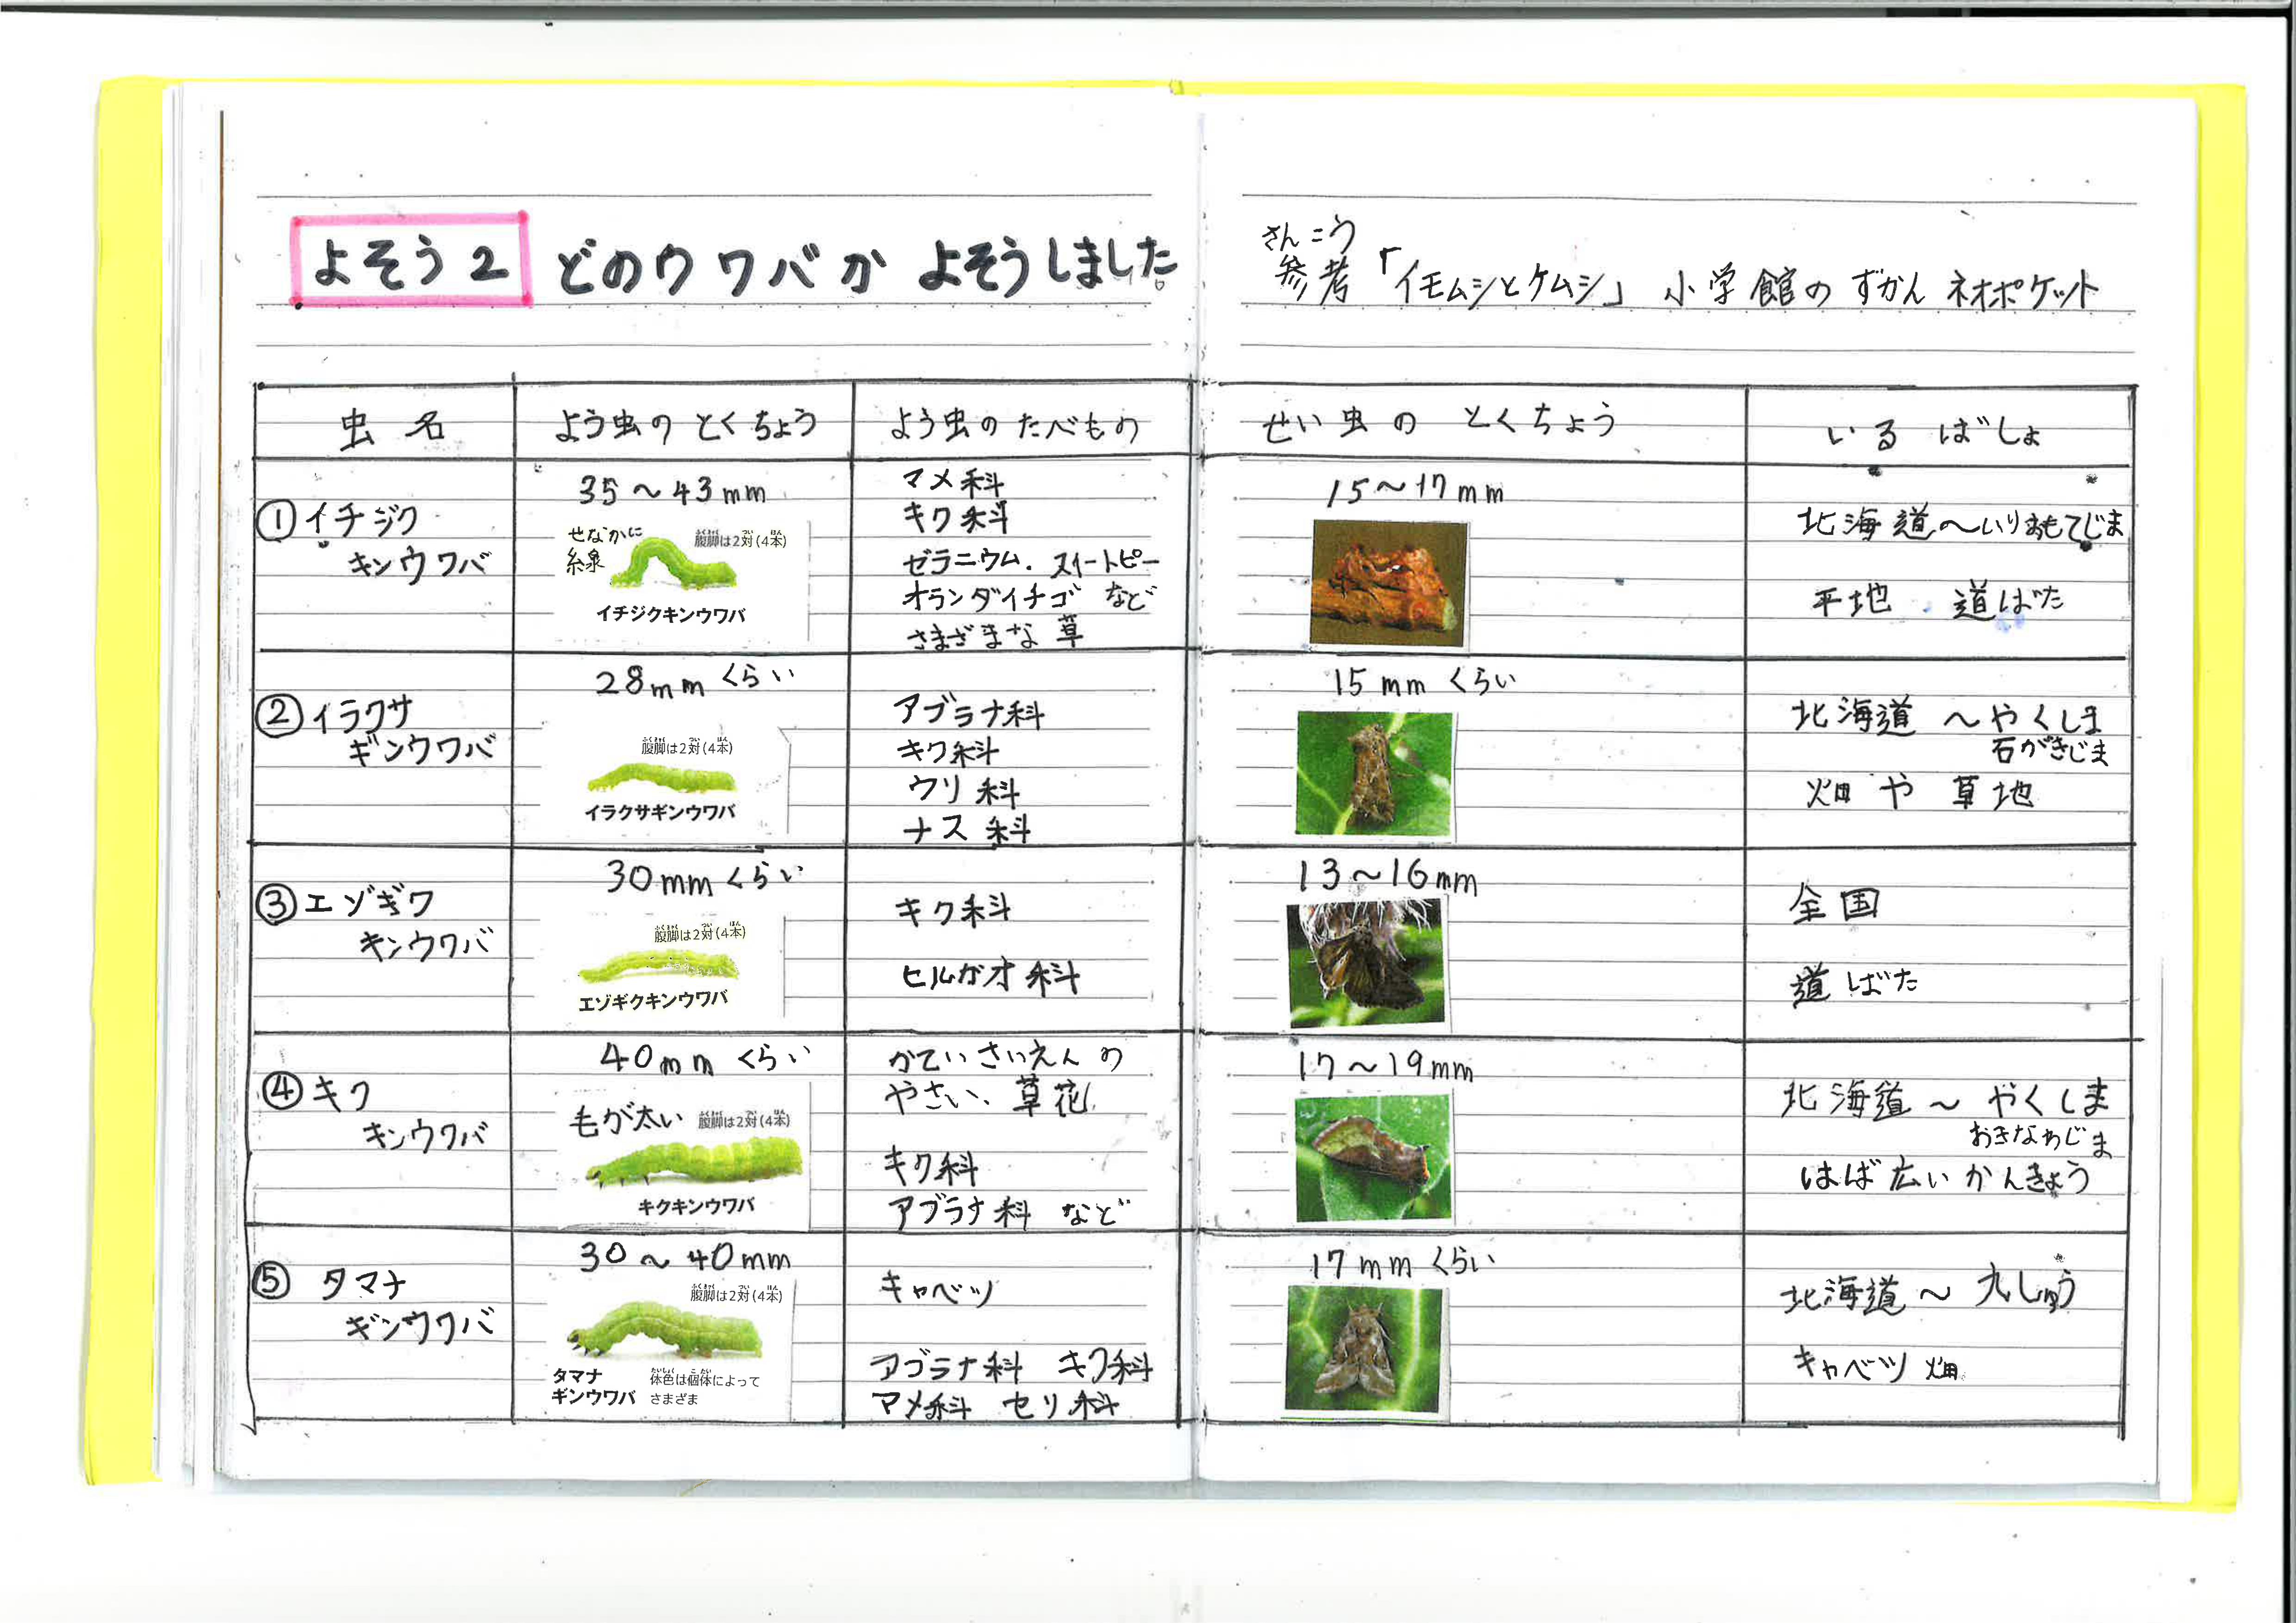 よそう2 どのウワバか よそうしました。
さんこう
参考「イモムシとケムシ」小学館のずかん ネオポケット
虫名 よう虫のとくちょう よう虫のたべもの せい虫のとくちょう いるばしょ
①イチジク
キンウワバ
35〜43mm
せなかに
線
腹脚は2対(4本)
イチジクキンウワバ
マメ科
キク科
ゼラニウム.スイートピー
オランダイチゴ など
さまざまな草
15〜17mm
北海道〜いりおもてじま
平地 道ばた
②イラクサ
ギンウワバ
28mmくらい
腹脚は2対(4本)
イラクサギンウワバ
アブラナ科
キク科
ウリ科
ナス科
15mmくらい
北海道〜やくしま
石がきじま
畑や草地
③エゾギク
キンウワバ
30mmくらい
腹脚は2対(4本)
エゾギクキンウワバ
キク科
ヒルガオ科
13〜16mm
全国
道ばた
④キク
キンウワバ
40mmくらい
毛が太い
腹脚は2対(4本)
キクキンウワバ
かていさいえんの
やさい、草花
キク科
アブラナ科 など
17〜19mm
北海道〜やくしま
おきなわじま
はば広いかんきょう
⑤タマナ
ギンウワバ
30〜40mm
腹脚は2対(4本)
タマナ
ギンウワバ
体色は個体によって
さまざま
キャベツ
アブラナ科 キク科
マメ科 セリ科
17mmくらい
北海道〜九しゅう
キャベツ畑